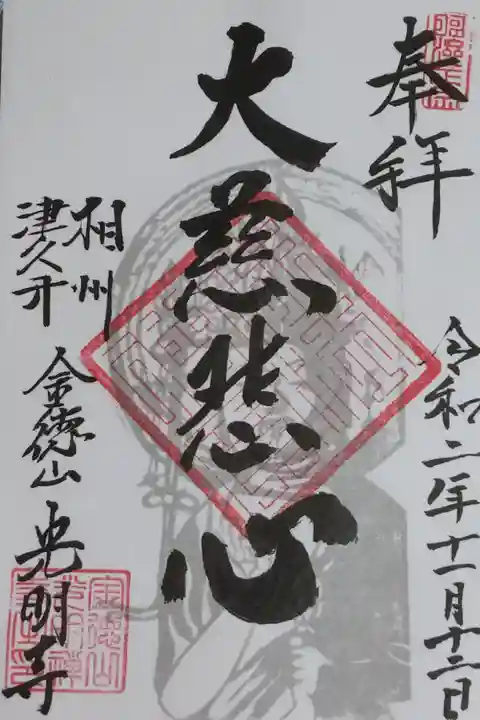 奉拝
令和二年十一月十二日
大慈悲心
相州
津久井
金徳山 光明寺